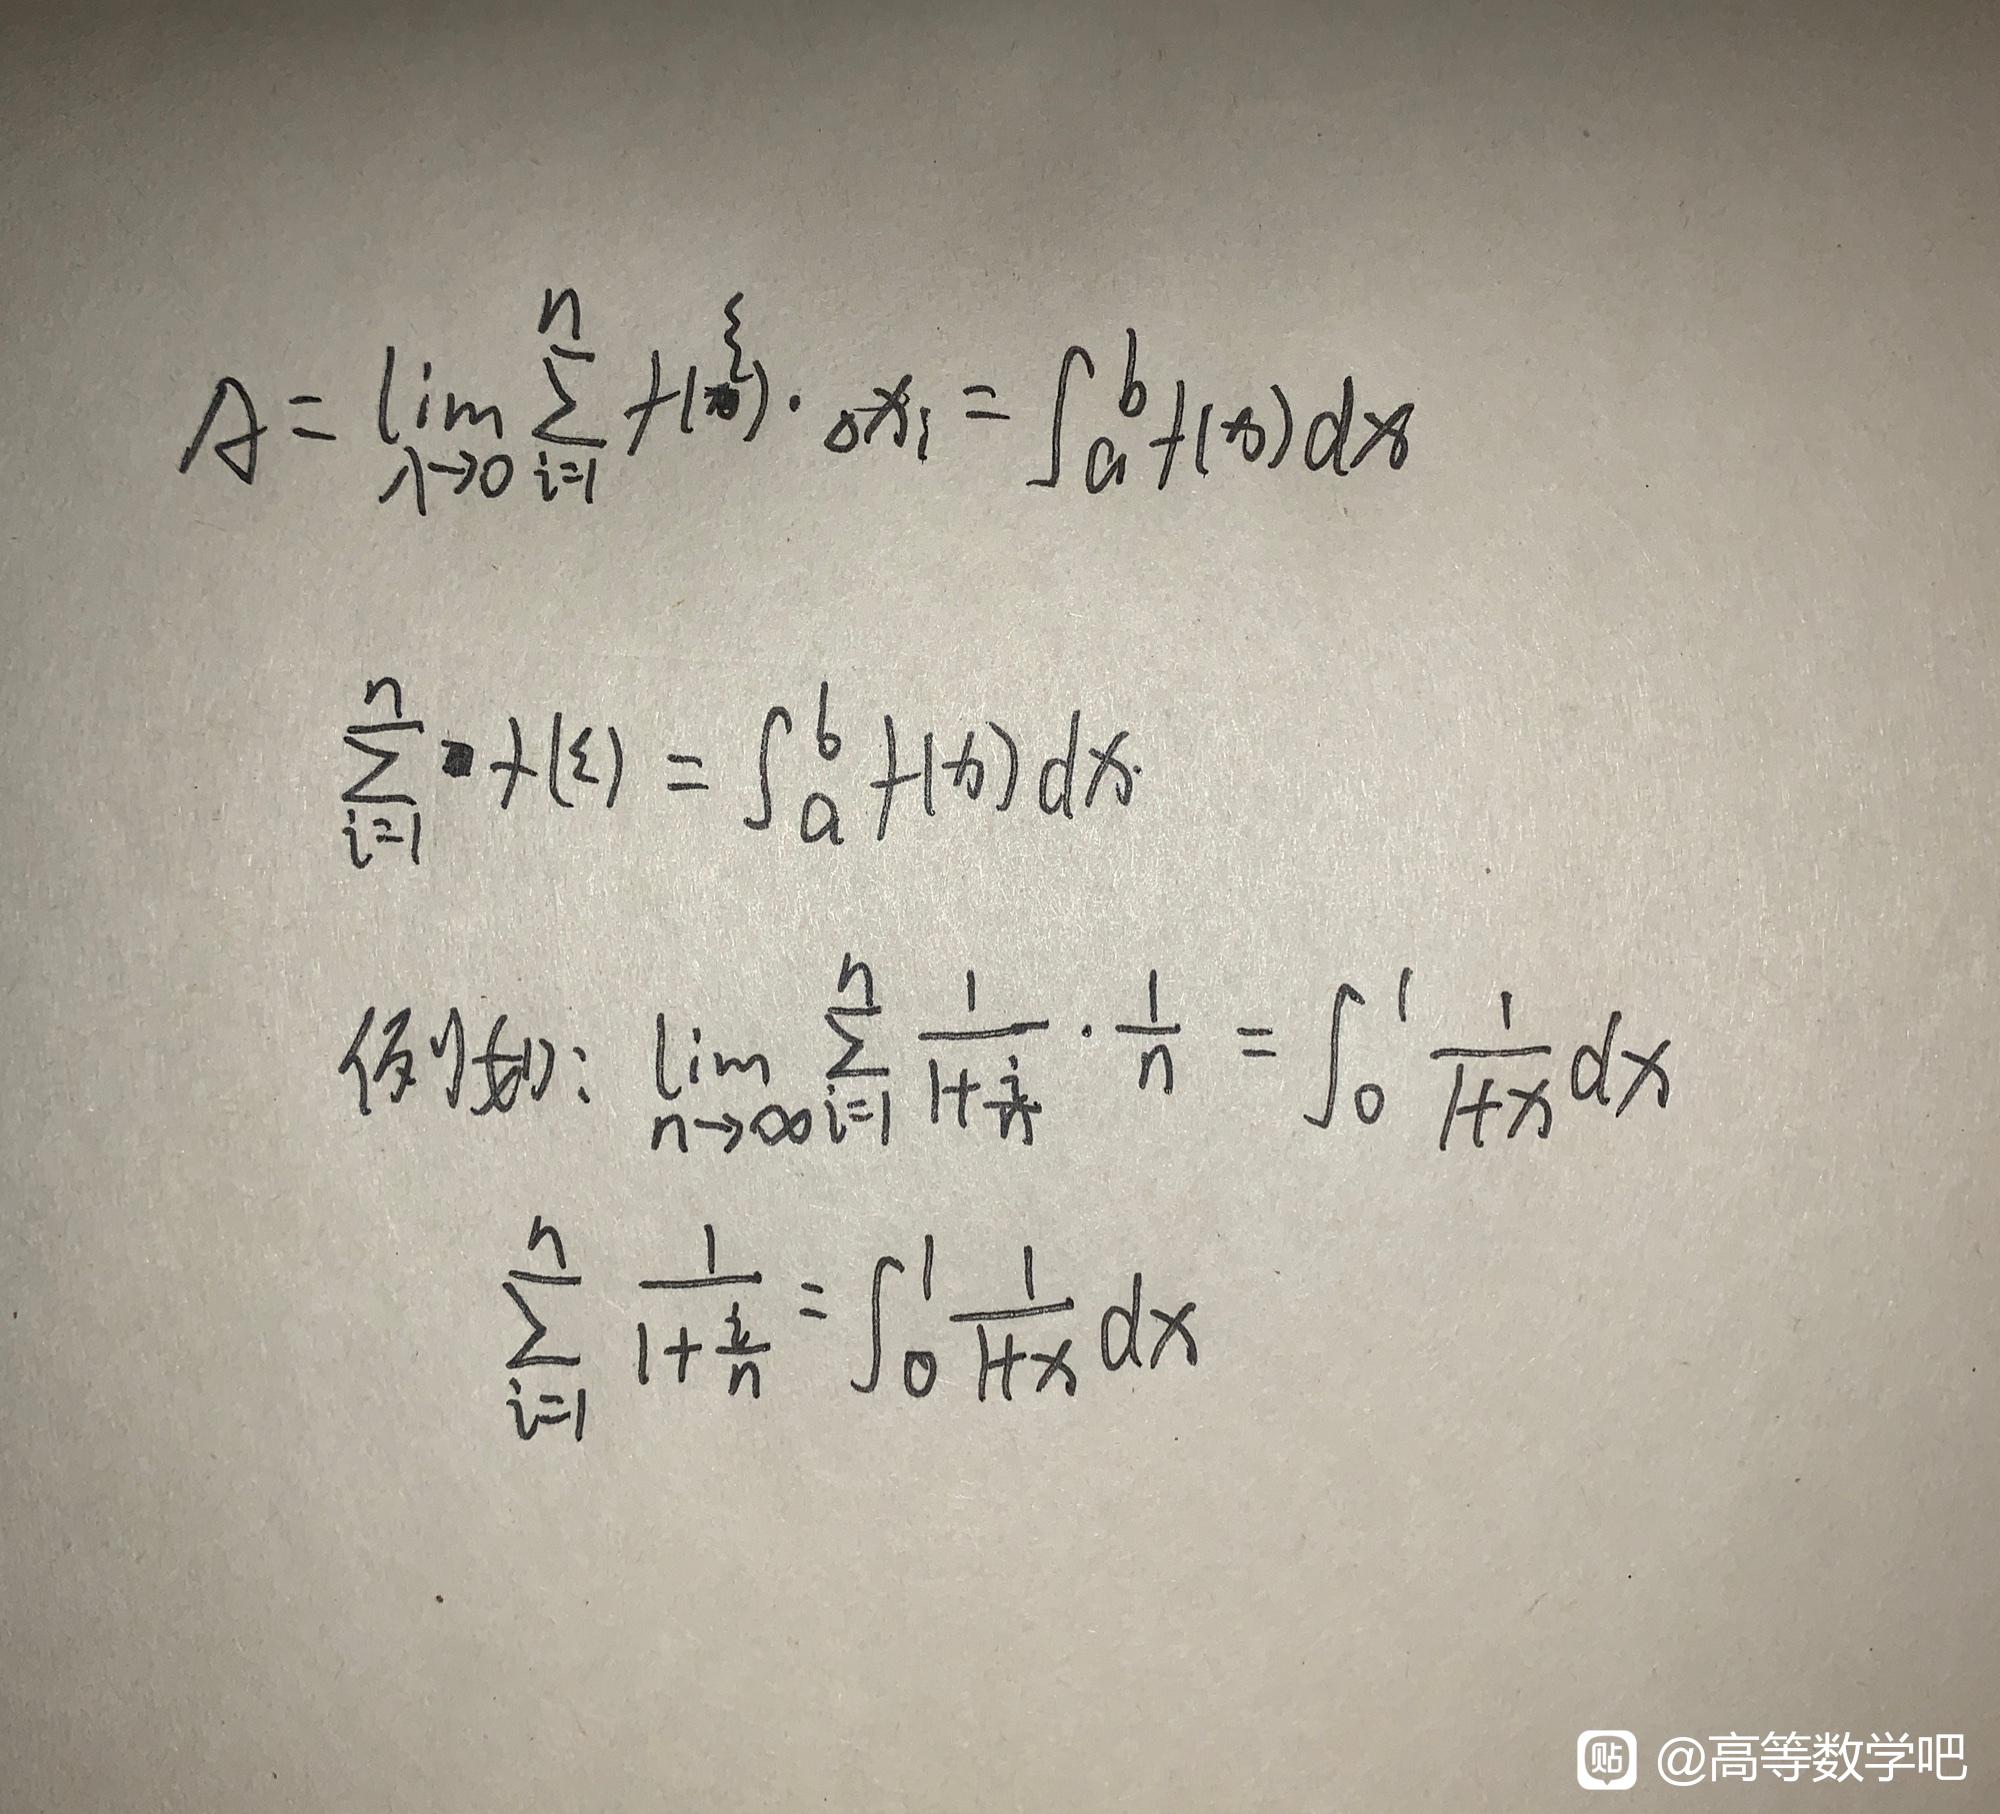 A = lim λ→0 n ∑ i=1 f(ξ)·Δxi = ∫ a b f(x)dx
n ∑ i=1 f(ξ) = ∫ a b f(x)dx
例如: lim n→∞ n ∑ i=1 1/(1+i/n) · 1/n = ∫ 0 1 1/(1+x) dx
n ∑ i=1 1/(1+i/n) = ∫ 0 1 1/(1+x) dx
贴 @高等数学吧